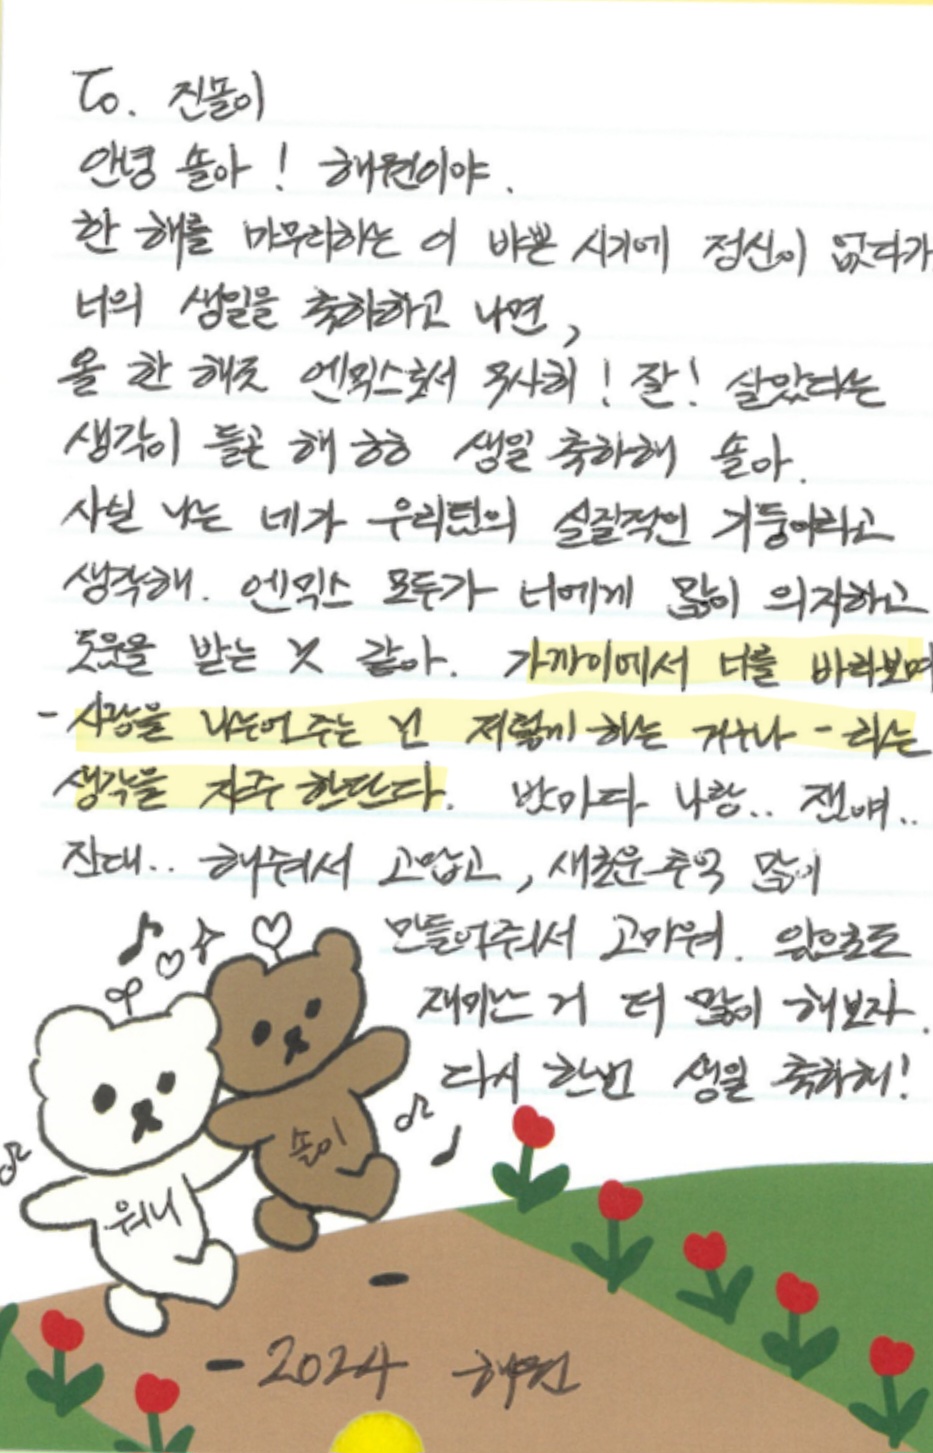 To. 진솔이
안녕 솔아! 해원이야.
한 해를 마무리하는 이 바쁜 시기에 정신이 없다가
너의 생일을 축하하고 나면,
올 한 해도 엔믹스로서 무사히! 잘! 살았다는
생각이 들곤 해 ㅎㅎ 생일 축하해 솔아.
사실 나는 네가 우리팀의 실질적인 기둥이라고
생각해. 엔믹스 모두가 너에게 많이 의지하고
도움을 받는 것 같아. 가까이에서 너를 바라보며
- 사랑을 나누어 주는 건 저렇게 하는 거구나 - 라는
생각을 자주 한단다. 밤마다 나랑.. 전얘..
진대.. 해줘서 고맙고, 새로운 추억 많이
만들어줘서 고마워. 앞으로도
재미난 거 더 많이 해보자.
다시 한번 생일 축하해!
솔이
워니
- 2024 해원